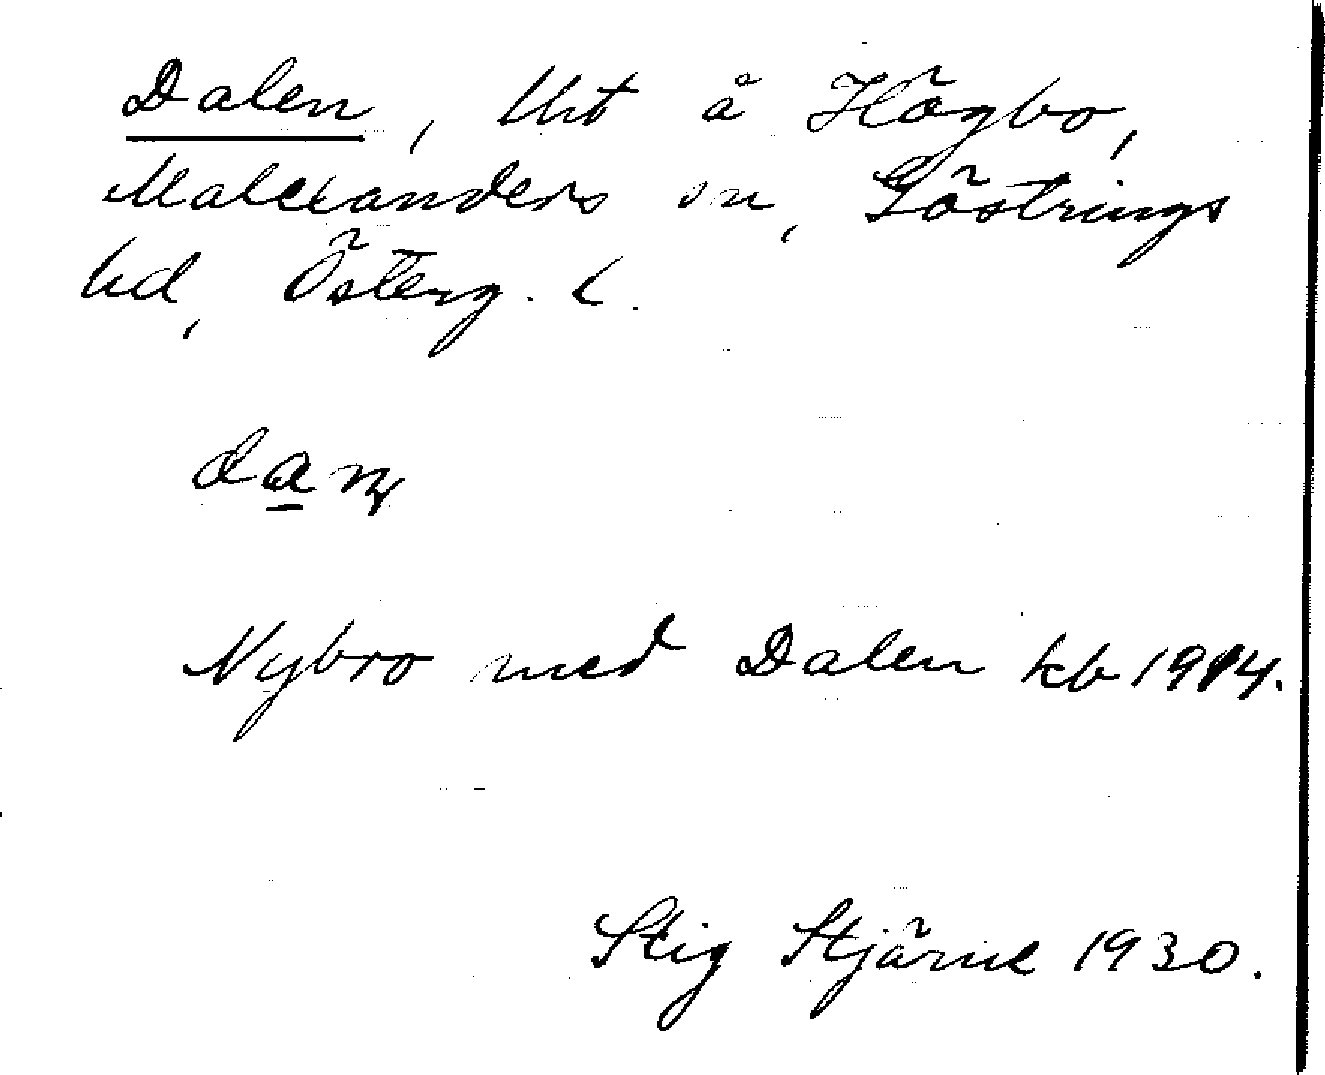 Dalen, lht å Högbo,
Malexanders sn, Göstrings
hd, Österg. l.
dan
Nybro med Dalen kb 1914.
Stig Stjärne 1930.